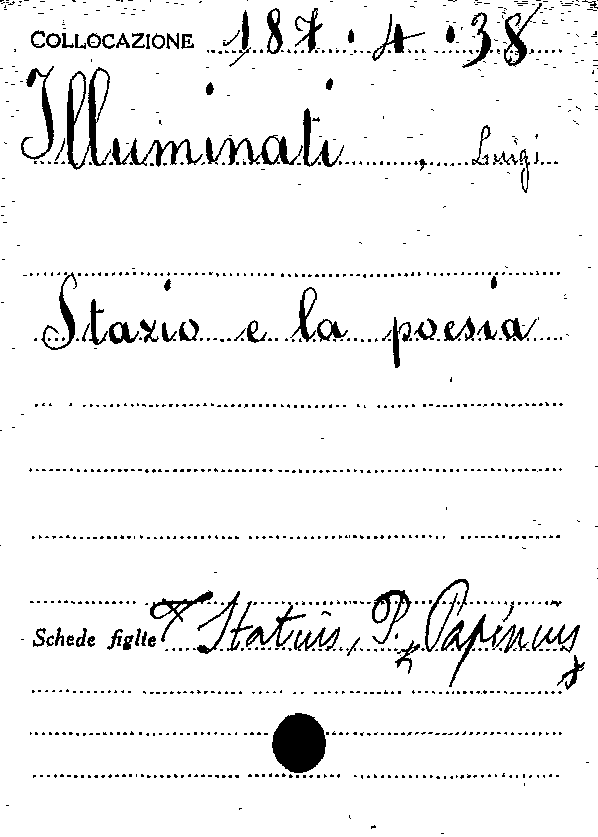 COLLOCAZIONE 187.4.38
Illuminati, Luigi
Stazio e la poesia
Schede figlie Statius, P. Papinius